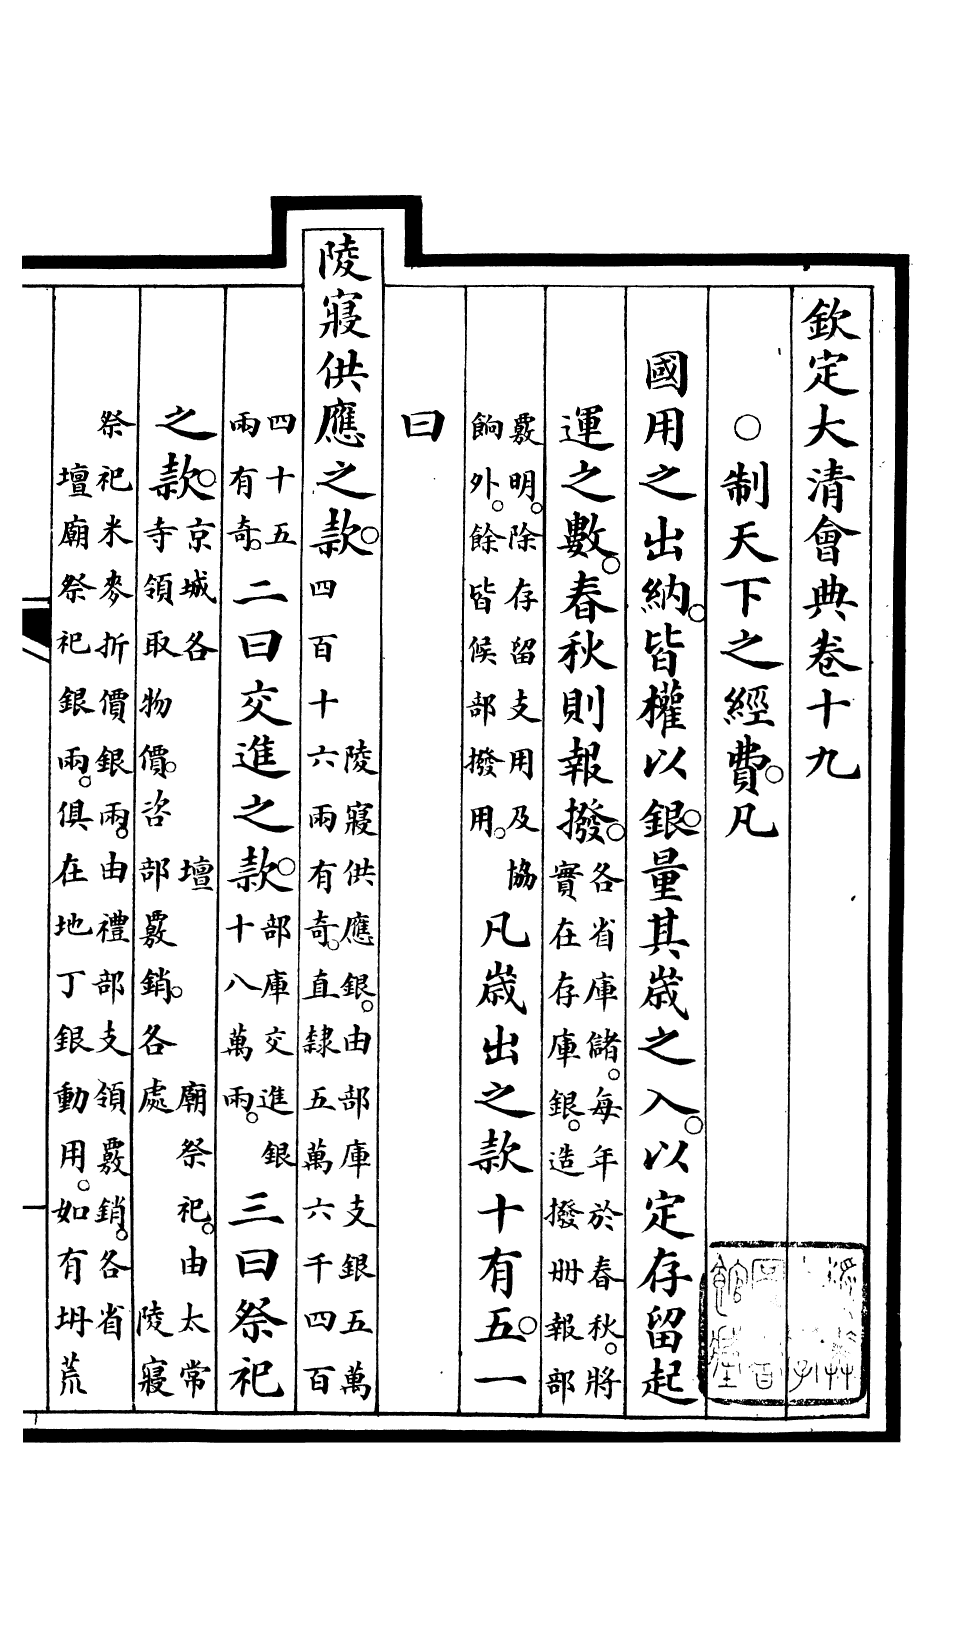 欽定大清會典卷十九
○制天下之經費。凡
國用之出納。皆權以銀。量其歲之入。以定存留起
運之數。春秋則報撥。各省庫儲。每年於春秋。將實在存庫銀。造撥冊報部
覈明。除存留支用及協餉外。餘皆候部撥用。凡歲出之款十有五。一
曰
陵寢供應之款。陵寢供應銀。由部庫支銀五萬四百十六兩有奇。直隸五萬六千四百
四十五兩有奇。二曰交進之款。部庫交進銀十八萬兩。三曰祭祀
之款。京城各壇廟祭祀。由太常寺領取物價。咨部覈銷。各處陵寢
祭祀米麥折價銀兩。由禮部支領覈銷。各省壇廟祭祀銀兩。俱在地丁銀動用。如有坍荒